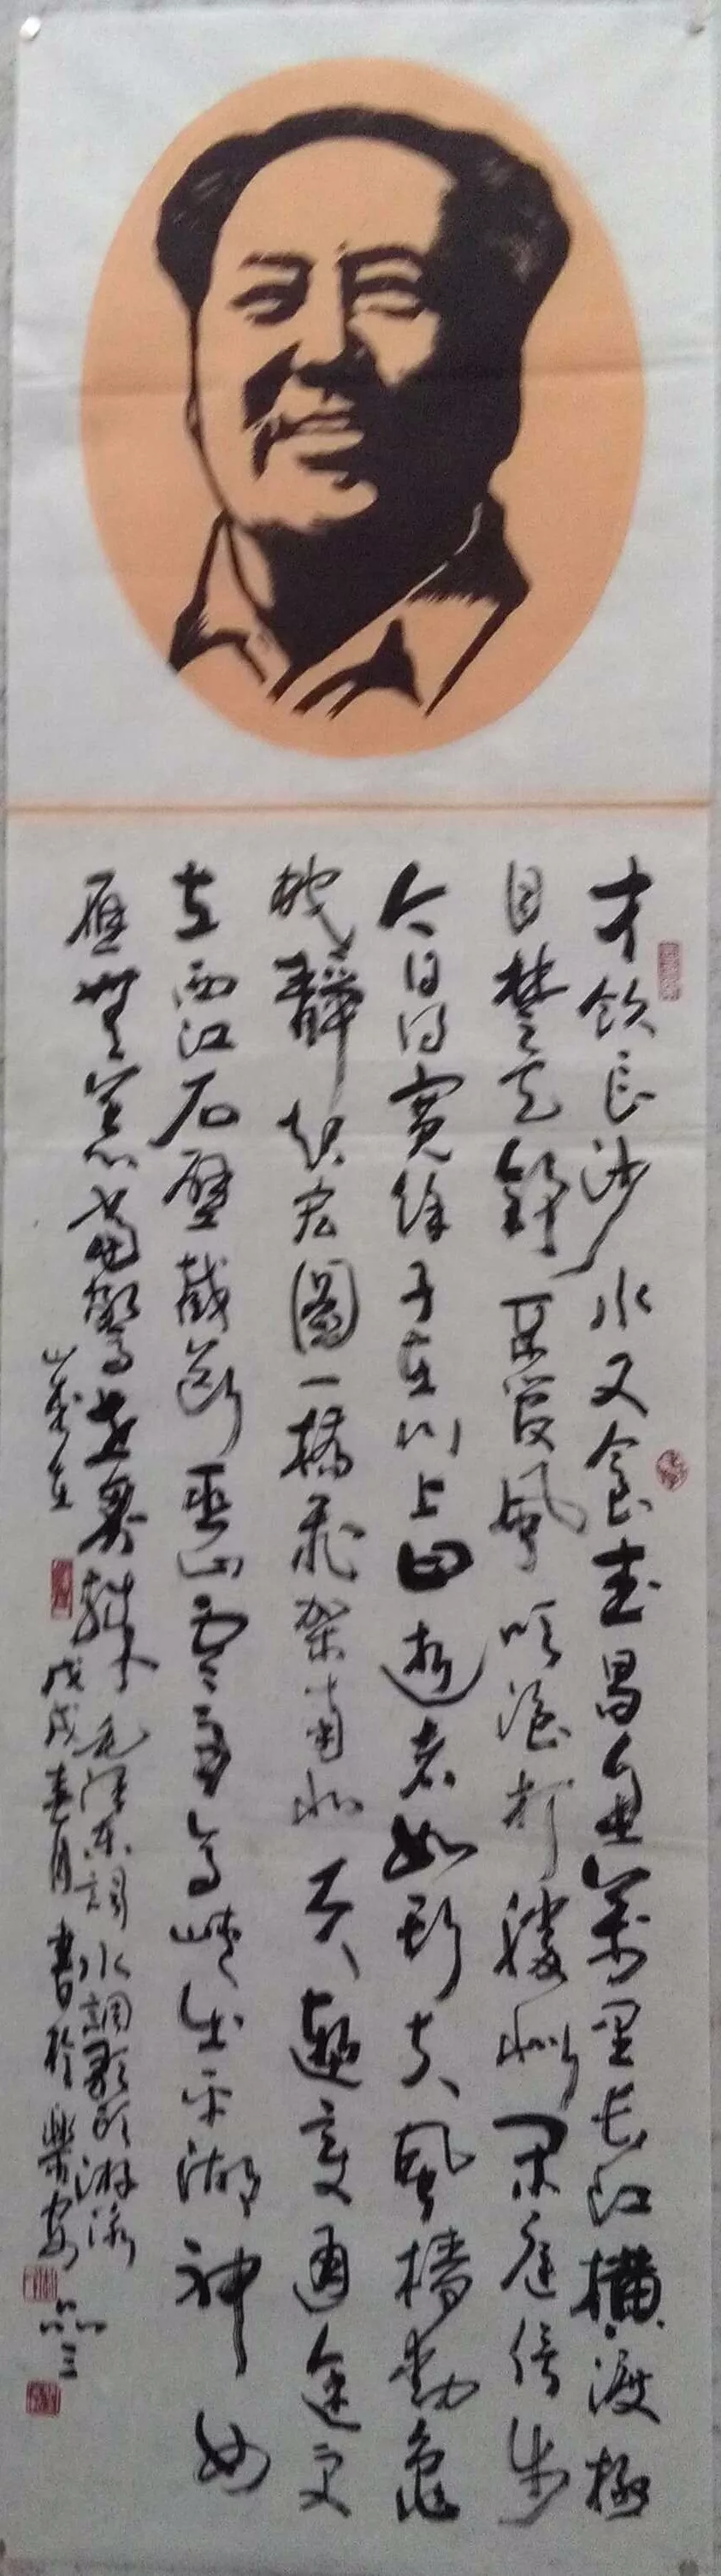 才饮长沙水又食武昌鱼万里长江横渡极
目楚天舒不管风吹浪打胜似闲庭信步
今日得宽馀子在川上曰逝者如斯夫风樯动龟
蛇静起宏图一桥飞架南北天堑变通途更
立西江石壁截断巫山云雨高峡出平湖神女
应無恙當驚世界殊 毛泽东词水調歌頭游泳
戊戌春月書於樂安